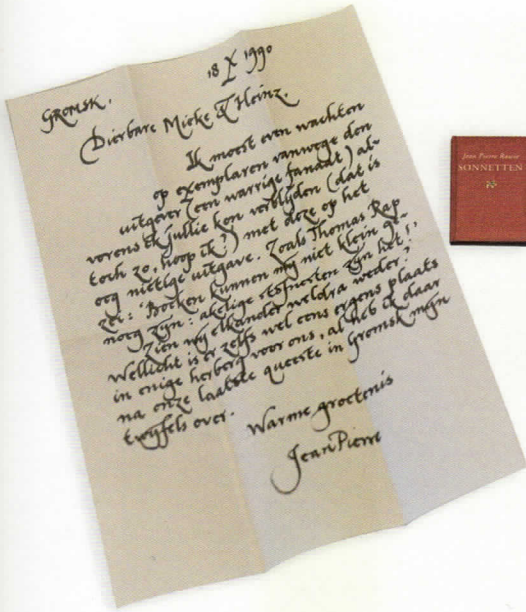 18 X 1990
GROMSK.
Dierbare Mieke & Heinz.
Ik moest even wachten
op exemplaren vanwege den
uitgever (een warrige fanaat) al-
vorens ik jullie kon verblijden (dat is
toch zo, hoop ik?) met deze op het
oog nietige uitgave. Zoals Thomas Rap
zei: "Boeken kunnen mij niet klein ge-
noeg zijn: akelige stofnesten zijn het",
Zien wij elkander weldra weder?
Wellicht is er zelfs wel eens ergens plaats
in enige herberg voor ons, al heb ik daar
na onze laatste queeste in Gromsk mijn
twijfels over.
Warme groetenis
Jean Pierre
Jean Pierre Rawie
SONNETTEN